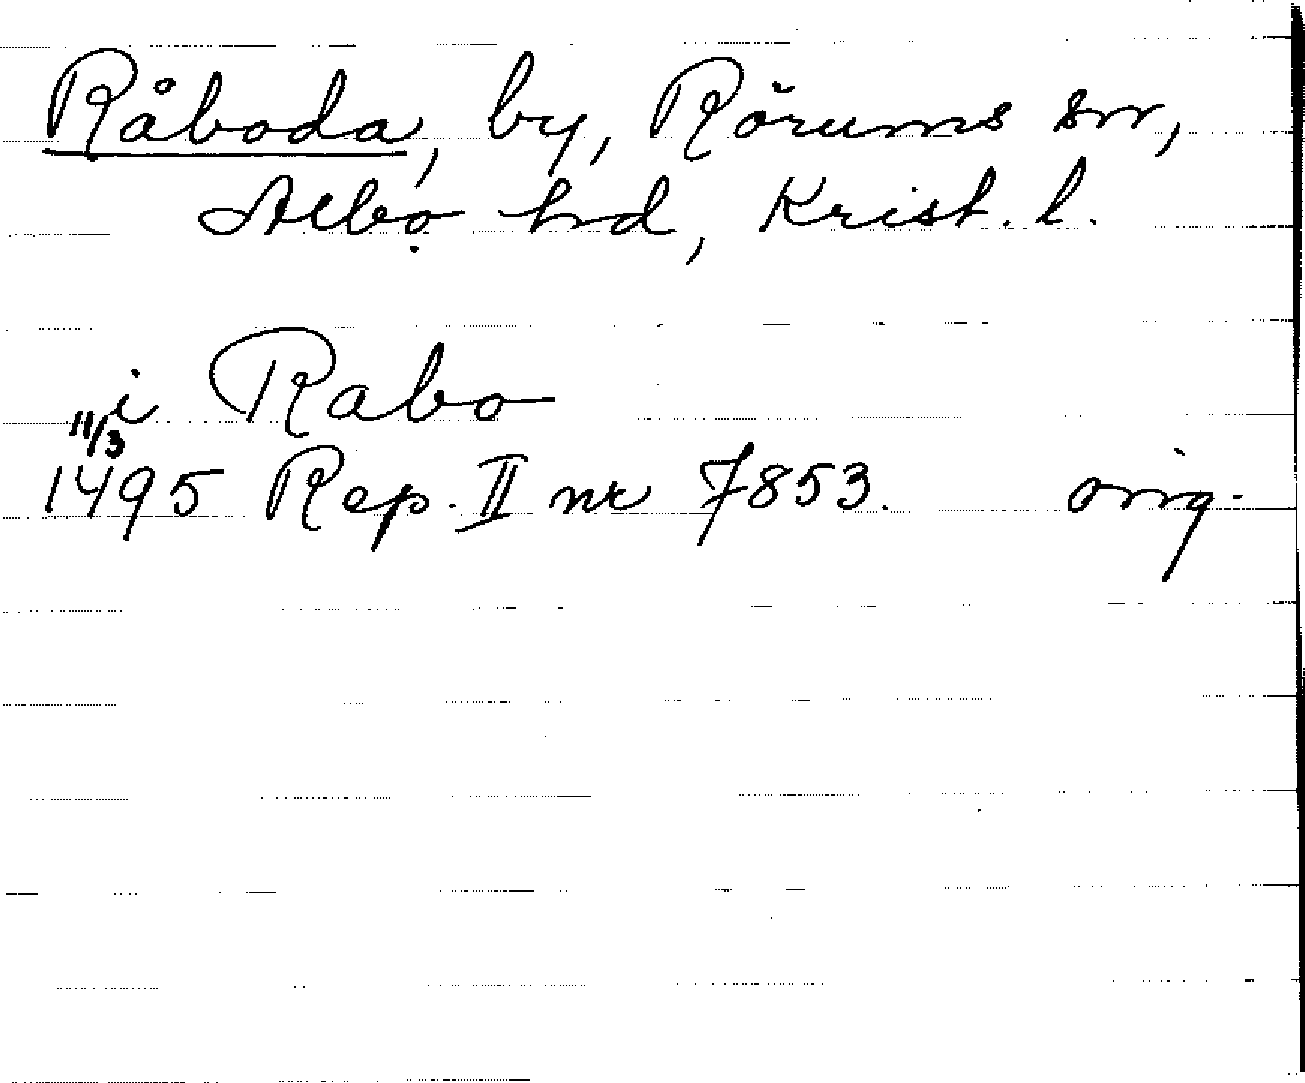 Råboda, by, Rörums sn,
Albo hd, Krist. l.
i Rabo
11/3
1495 Rep. II nr 7853. orig.